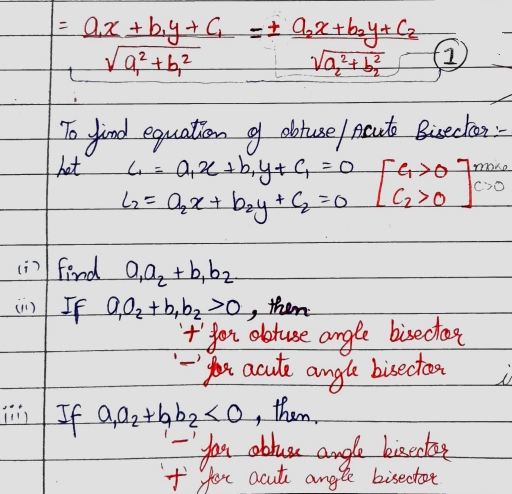 = a₁x + b₁y + c₁ / √a₁² + b₁² = ± a₂x + b₂y + c₂ / √a₂² + b₂² ①
To find equation of obtuse/Acute Bisector:-
Let L₁ = a₁x + b₁y + c₁ = 0 [c₁>0 make
L₂ = a₂x + b₂y + c₂ = 0 c₂>0] c>0
(i) find a₁a₂ + b₁b₂
(ii) If a₁a₂ + b₁b₂ >0, then
'+' for obtuse angle bisector
'-' for acute angle bisector
(iii) If a₁a₂ + b₁b₂ < 0, then.
'-' for obtuse angle bisector
'+' for acute angle bisector